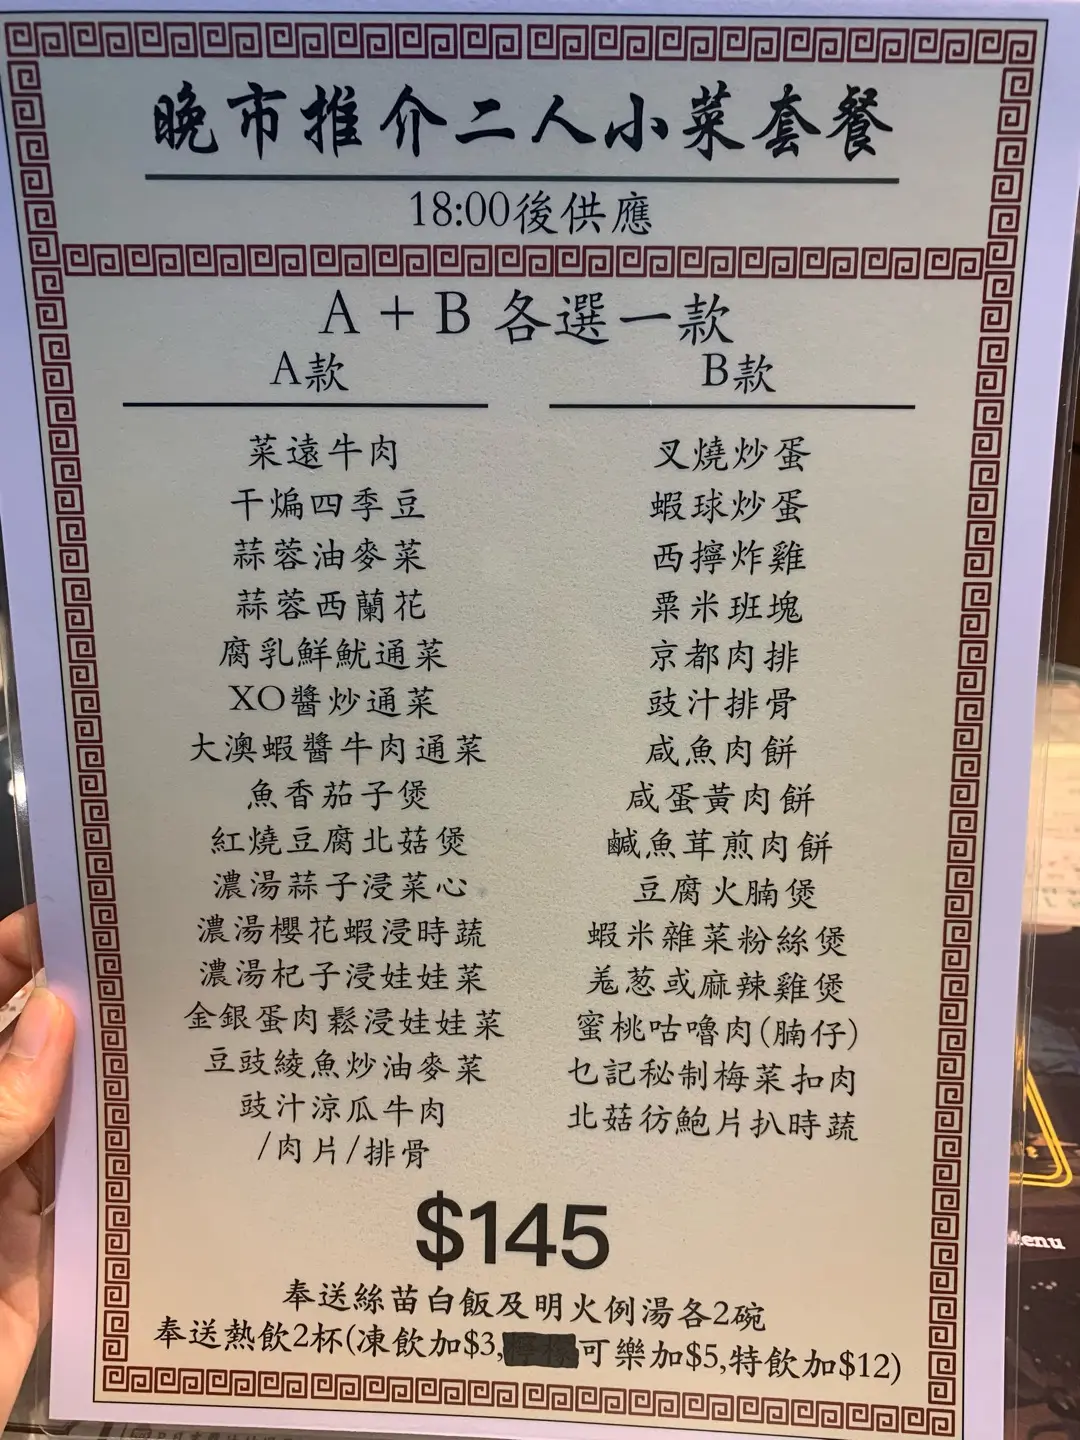 晚市推介二人小菜套餐
18:00後供應
A + B 各選一款
A款
菜遠牛肉
干煸四季豆
蒜蓉油麥菜
蒜蓉西蘭花
腐乳鮮魷通菜
XO醬炒通菜
大澳蝦醬牛肉通菜
魚香茄子煲
紅燒豆腐北菇煲
濃湯蒜子浸菜心
濃湯櫻花蝦浸時蔬
濃湯杞子浸娃娃菜
金銀蛋肉鬆浸娃娃菜
豆豉綾魚炒油麥菜
豉汁涼瓜牛肉
/肉片/排骨
B款
叉燒炒蛋
蝦球炒蛋
西擰炸雞
粟米班塊
京都肉排
豉汁排骨
咸魚肉餅
咸蛋黃肉餅
鹹魚茸煎肉餅
豆腐火腩煲
蝦米雜菜粉絲煲
羗葱或麻辣雞煲
蜜桃咕嚕肉(腩仔)
乜記秘制梅菜扣肉
北菇彷鮑片扒時蔬
$145
奉送絲苗白飯及明火例湯各2碗
奉送熱飲2杯(凍飲加$3,可樂加$5,特飲加$12)
Menu